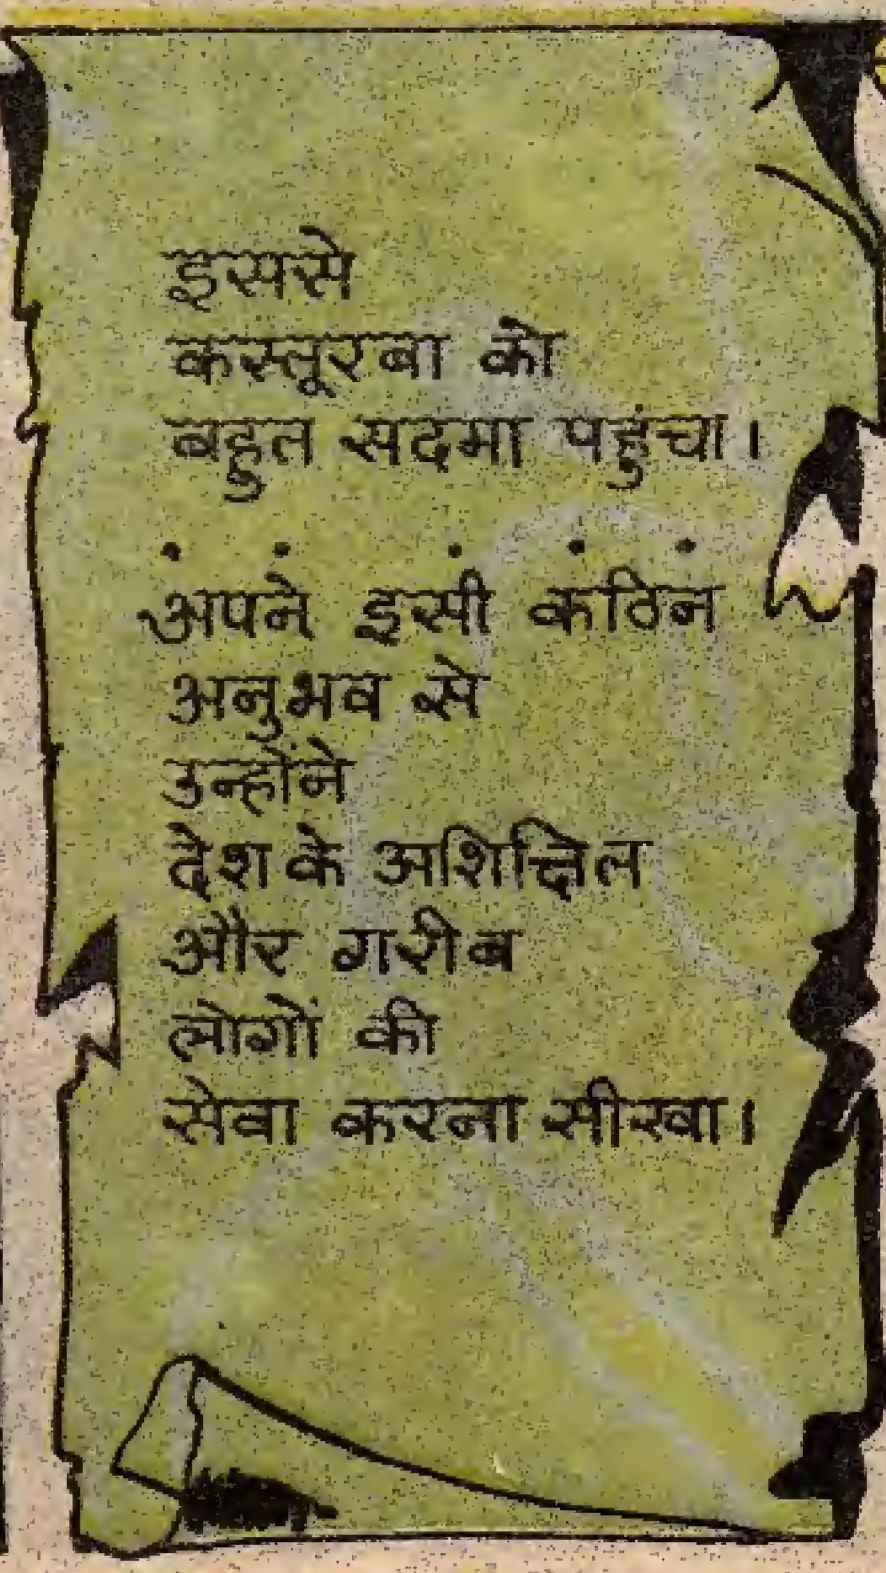 इससे
कस्तूरबा को
बहुत सदमा पहुंचा।
. . . . .
अपने इसी कठिन
अनुभव से
उन्होंने
देश के अशिक्षित
और गरीब
लोगों की
सेवा करना सीखा।